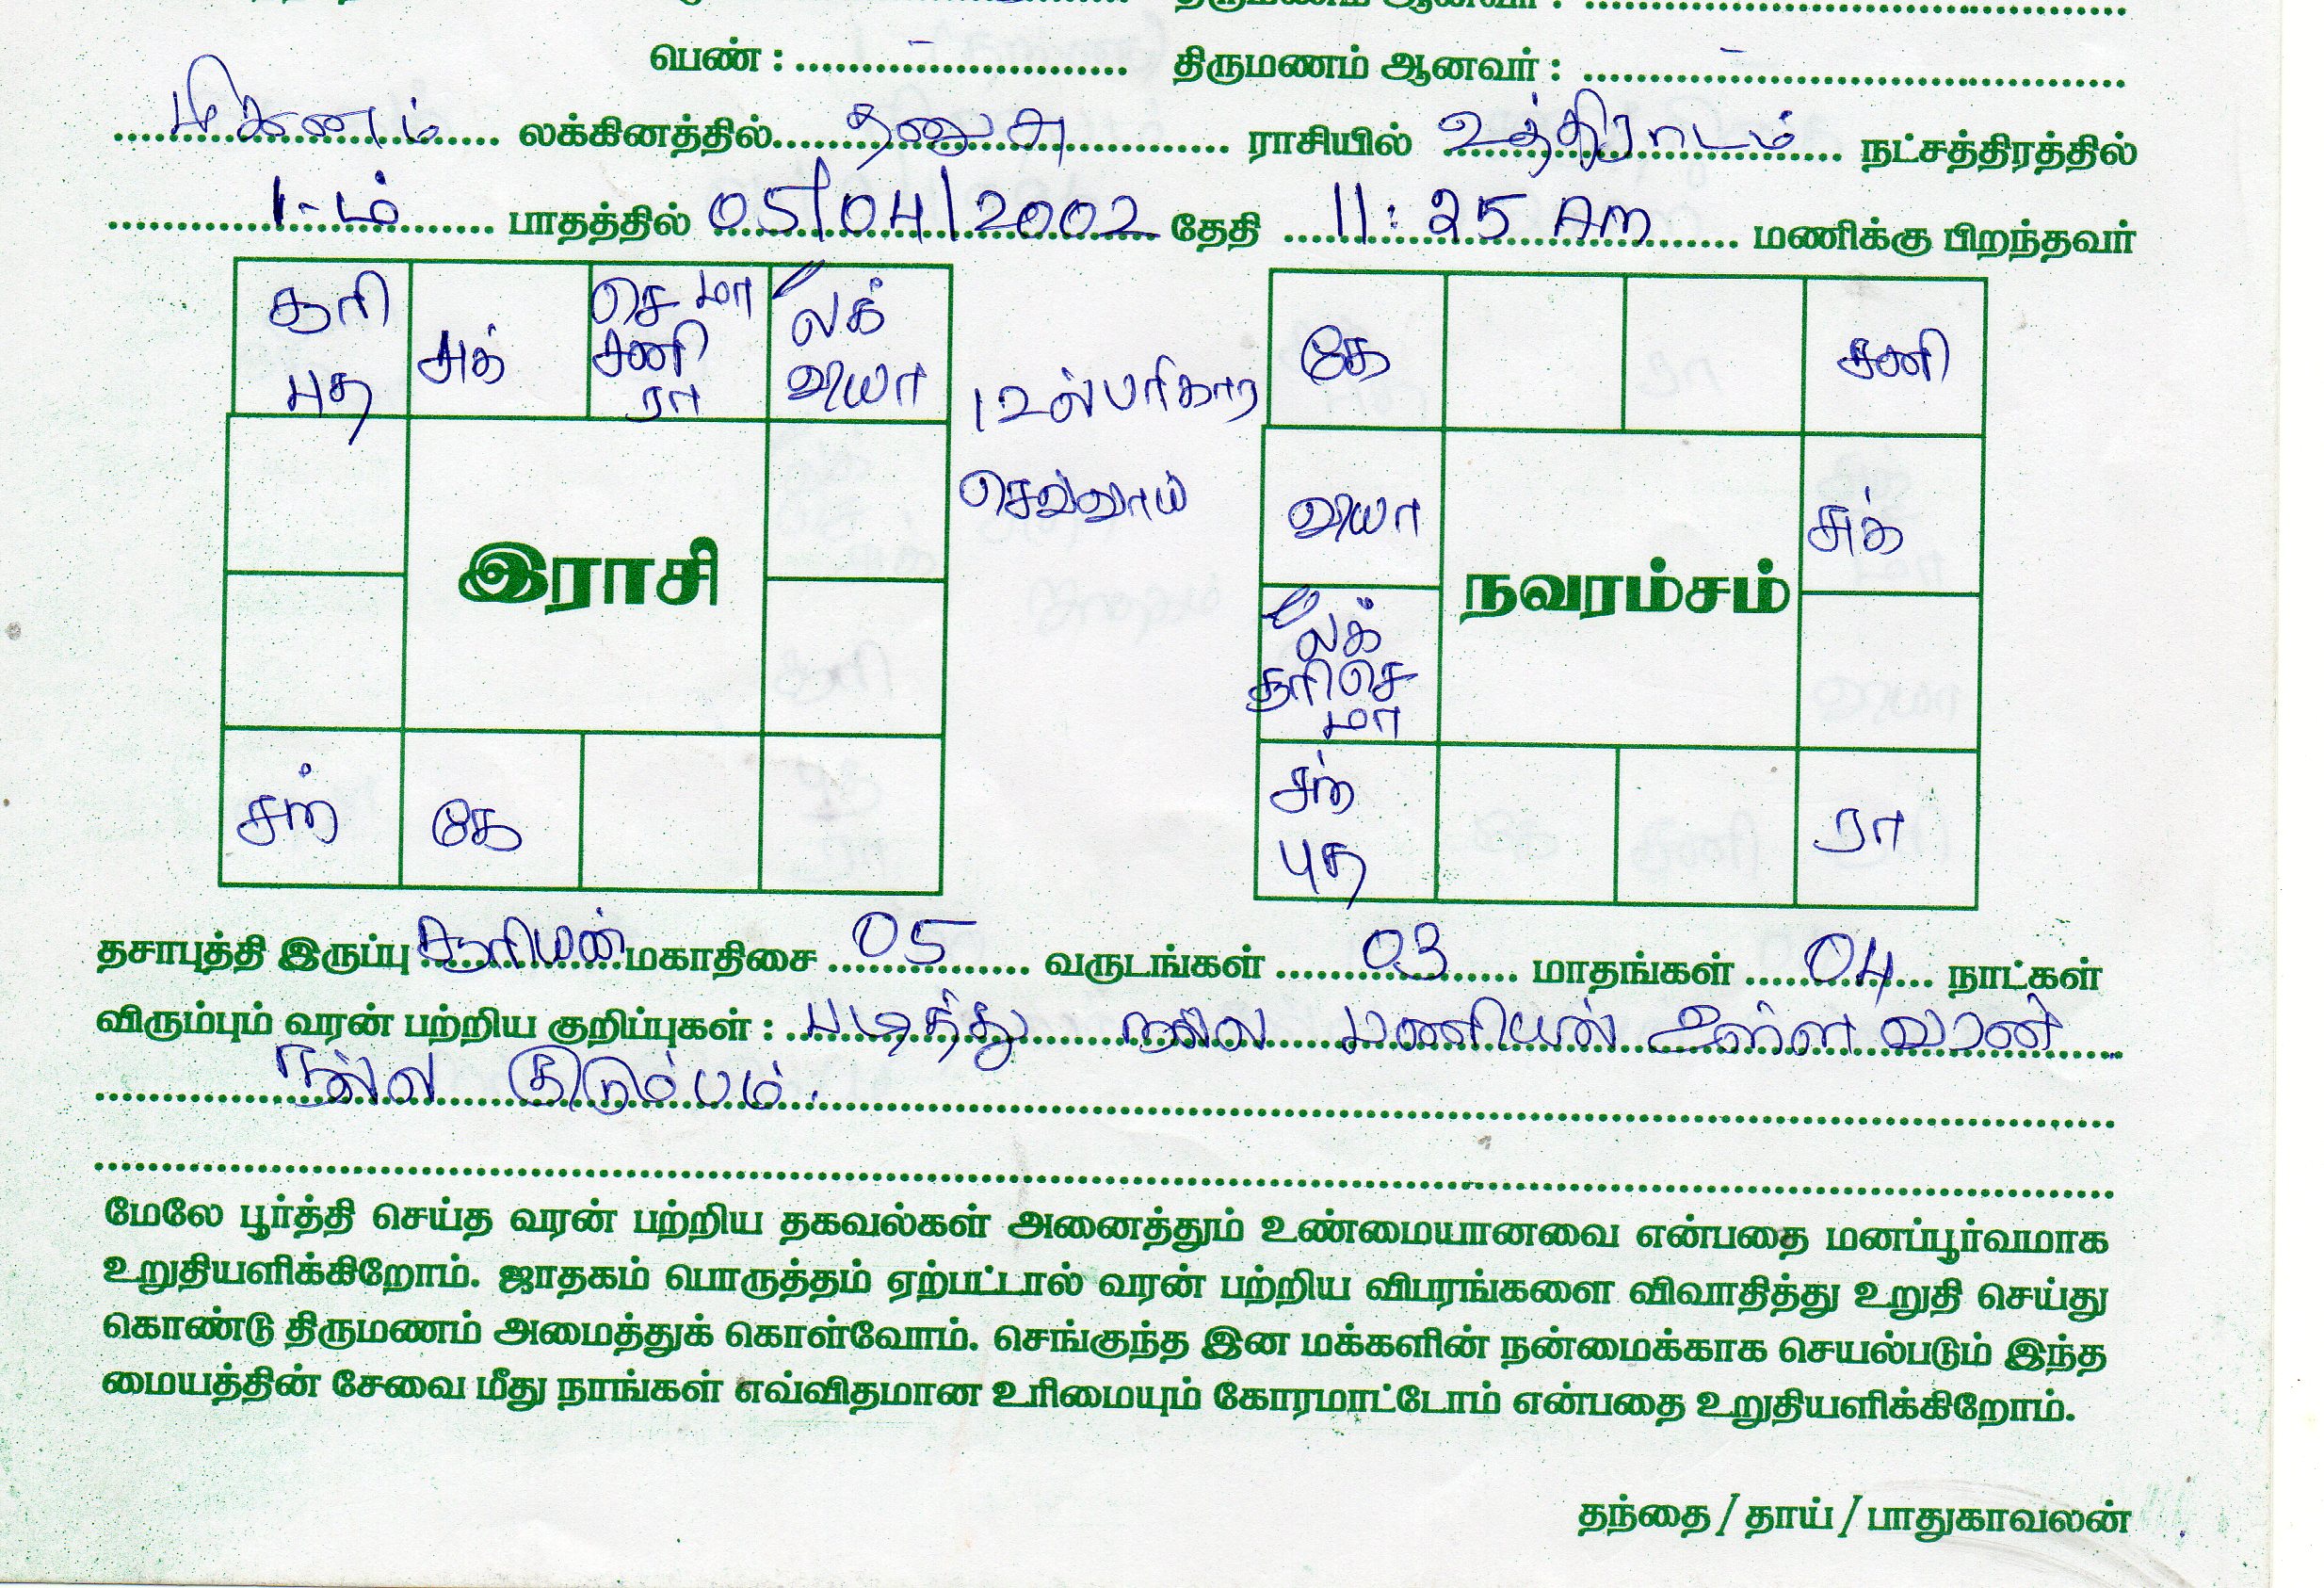 பெண் : ..................... திருமணம் ஆனவர் : .....................
மிதுனம் லக்கினத்தில் தனுசு ராசியில் உத்திராடம் நட்சத்திரத்தில்
1-ம் பாதத்தில் 05/04/2002 தேதி 11:25 Am மணிக்கு பிறந்தவர்
சூரி புத
சுக்
செ மா சனி ரா
லக் வியா
12ல் பரிகார செவ்வாய்
இராசி
சந்
கே
கே
சனி
வியா
சுக்
நவரம்சம்
லக் சூரி செ மா
சந் புத
ரா
தசாபுத்தி இருப்பு சூரியன் மகாதிசை 05 வருடங்கள் 03 மாதங்கள் 04 நாட்கள்
விரும்பும் வரன் பற்றிய குறிப்புகள் : படித்து நல்ல பணியில் உள்ள வரன்
நல்ல குடும்பம்.
மேலே பூர்த்தி செய்த வரன் பற்றிய தகவல்கள் அனைத்தும் உண்மையானவை என்பதை மனப்பூர்வமாக
உறுதியளிக்கிறோம். ஜாதகம் பொருத்தம் ஏற்பட்டால் வரன் பற்றிய விபரங்களை விவாதித்து உறுதி செய்து
கொண்டு திருமணம் அமைத்துக் கொள்வோம். செங்குந்த இன மக்களின் நன்மைக்காக செயல்படும் இந்த
மையத்தின் சேவை மீது நாங்கள் எவ்விதமான உரிமையும் கோரமாட்டோம் என்பதை உறுதியளிக்கிறோம்.
தந்தை / தாய் / பாதுகாவலன்